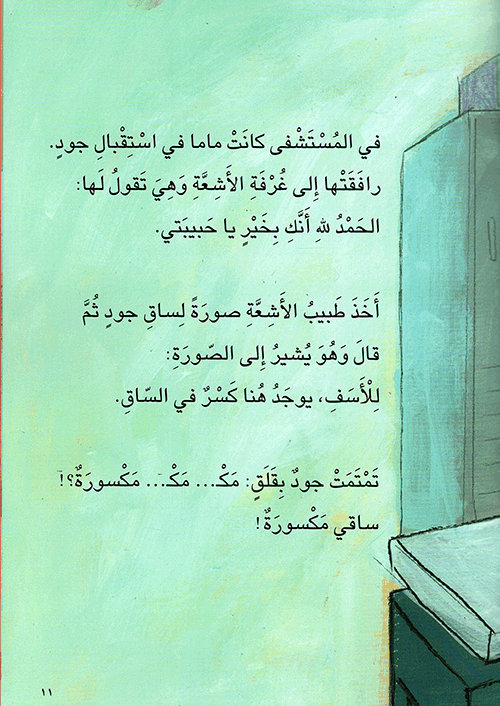 في المُسْتَشْفى كانَتْ ماما في اسْتِقْبالِ جودٍ.
رافَقَتْها إِلى غُرْفَةِ الأَشِعَّةِ وَهِيَ تَقولُ لَها:
الحَمْدُ للهِ أَنَّكِ بِخَيْرٍ يا حَبيبَتي.
أَخَذَ طَبيبُ الأَشِعَّةِ صورَةً لِساقِ جودٍ ثُمَّ
قالَ وَهُوَ يُشيرُ إِلى الصّورَةِ:
لِلْأَسَفِ، يوجَدُ هُنا كَسْرٌ في السّاقِ.
تَمْتَمَتْ جودٌ بِقَلَقٍ: مَكْـ... مَكْـ... مَكْسورَةٌ؟!
ساقي مَكْسورَةٌ!
١١